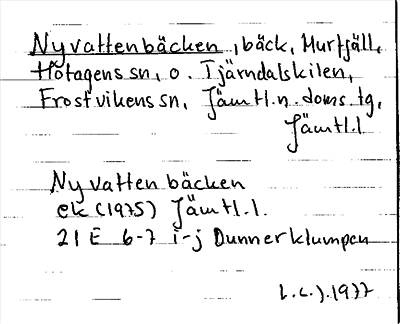 Nyvattenbäcken, bäck, Murfjäll,
Hotagens sn, o. Tjärndalskilen,
Frostvikens sn, Jämtl.n. doms.tg,
Jämtl.l
Nyvattenbäcken
ek (1975) Jämtl.l.
21 E 6-7 i-j Dunnerklumpen
L.C.J. 1977